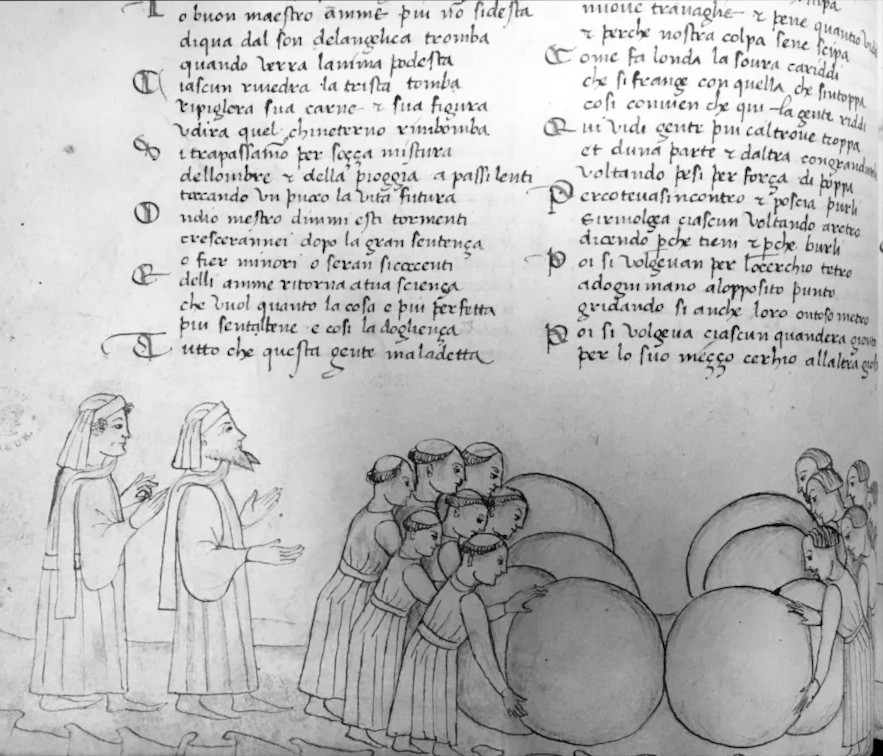 o buon maestro amme piu nō si desta
diqua dal son delangelica tromba
quando verra lanima podesta
Ciascun rivedra la trista tomba
ripiglera sua carne & sua figura
vdira quel chineterno rimbomba
Si trapassamō per soçça mistura
dellombre & della pioggia a passi lenti
toccando vn puoco la vita futura
Ondio mestro dimmi esti tormenti
crescerannei dopo la gran sentença
o fier minori o seran si cocenti
E delli amme ritorna atua sciença
che vuol quanto la cosa e piu perfetta
piu senta bene e cosi la doglença
Tutto che questa gente maladetta
nuove travaglie & pene quantio
& perche nostra colpa sene scipa
Come fa londa la soura cariddi
che si frange con quella che sintoppa
cosi convien che qui la gente riddi
Qui vidi gente piu caltrove troppa
et duna parte & daltra con grandurli
voltando pesi per força di poppa
Percotevasi incontro & poscia purli
si rivolgea ciascun voltando aretro
dicendo pche tieni & pche burli
Poi si volgevan per lo cerchio tetro
adogni mano alopposito punto
gridando si anche loro ontoso metro
Poi si volgeva ciascun quandera gionto
per lo suo meççο cerhio allaltra